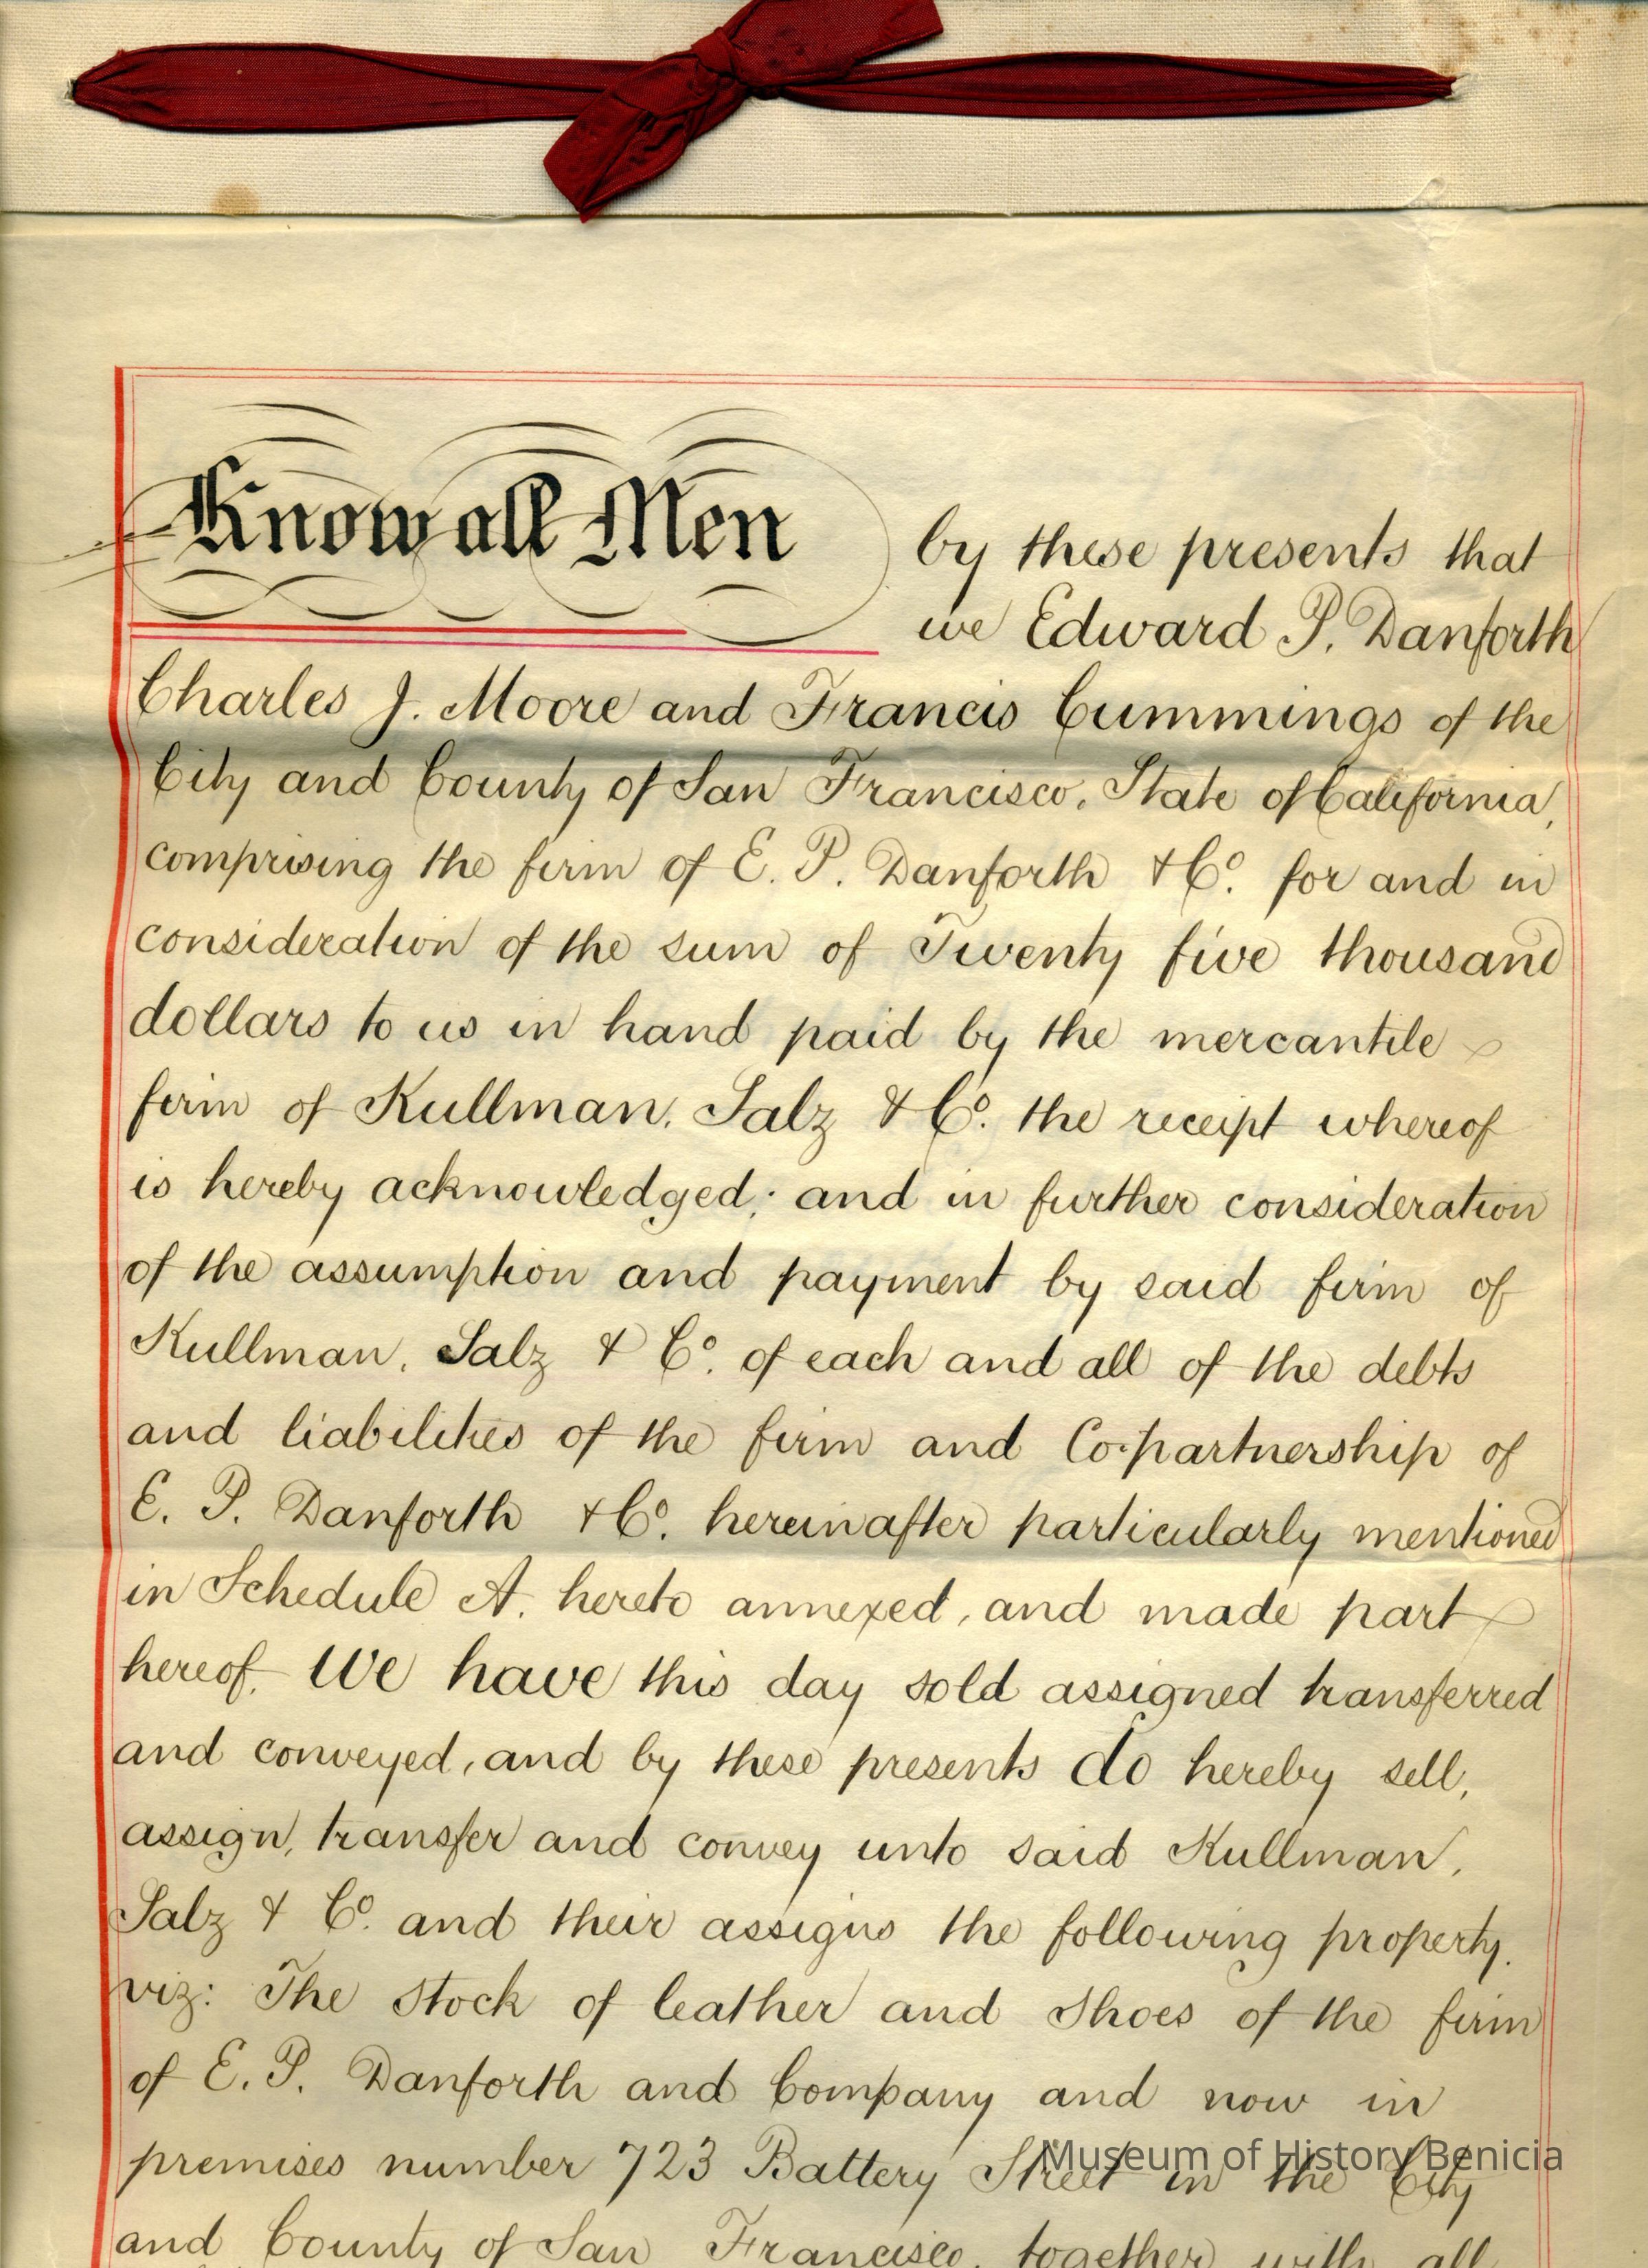 Know all Men by these presents that
we Edward P. Danforth
Charles J. Moore and Francis Cummings of the
City and County of San Francisco, State of California,
comprising the firm of E. P. Danforth & Co. for and in
consideration of the sum of Twenty five thousand
dollars to us in hand paid by the mercantile
firm of Kullman, Salz & Co. the receipt whereof
is hereby acknowledged; and in further consideration
of the assumption and payment by said firm of
Kullman, Salz & Co. of each and all of the debts
and liabilities of the firm and Co-partnership of
E. P. Danforth & Co. hereinafter particularly mentioned
in Schedule A. hereto annexed, and made part
hereof. We have this day sold assigned transferred
and conveyed, and by these presents do hereby sell,
assign, transfer and convey unto said Kullman,
Salz & Co. and their assigns the following property.
viz: The stock of leather and shoes of the firm
of E. P. Danforth and Company and now in
premises number 723 Battery Street in the City
Museum of History Benicia
and County of San Francisco, together with all